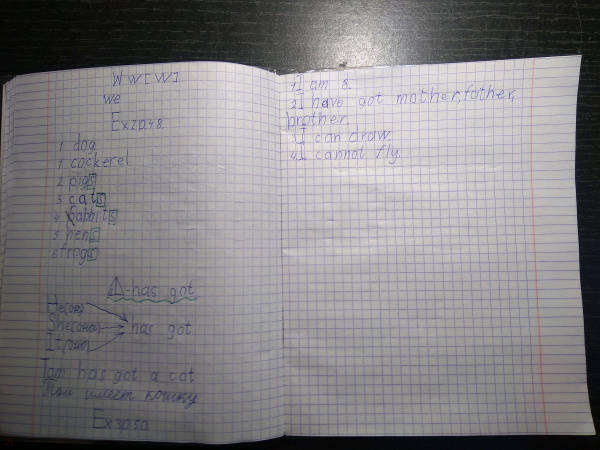 W w [w]
we
Ex 2 p. 48.
1 dog
1 cockerel
2 pig[s]
3 cat[s]
4 Rabbit[s]
5 hen[s]
6 frog[s]
-has got
He(он)
She(она) has got
It(
Tom has got a cat
Том имеет кошку
Ex 3 p. 50
1 I am 8.
2 I have got mother, father,
brother.
3 I can draw.
4 I cannot fly.